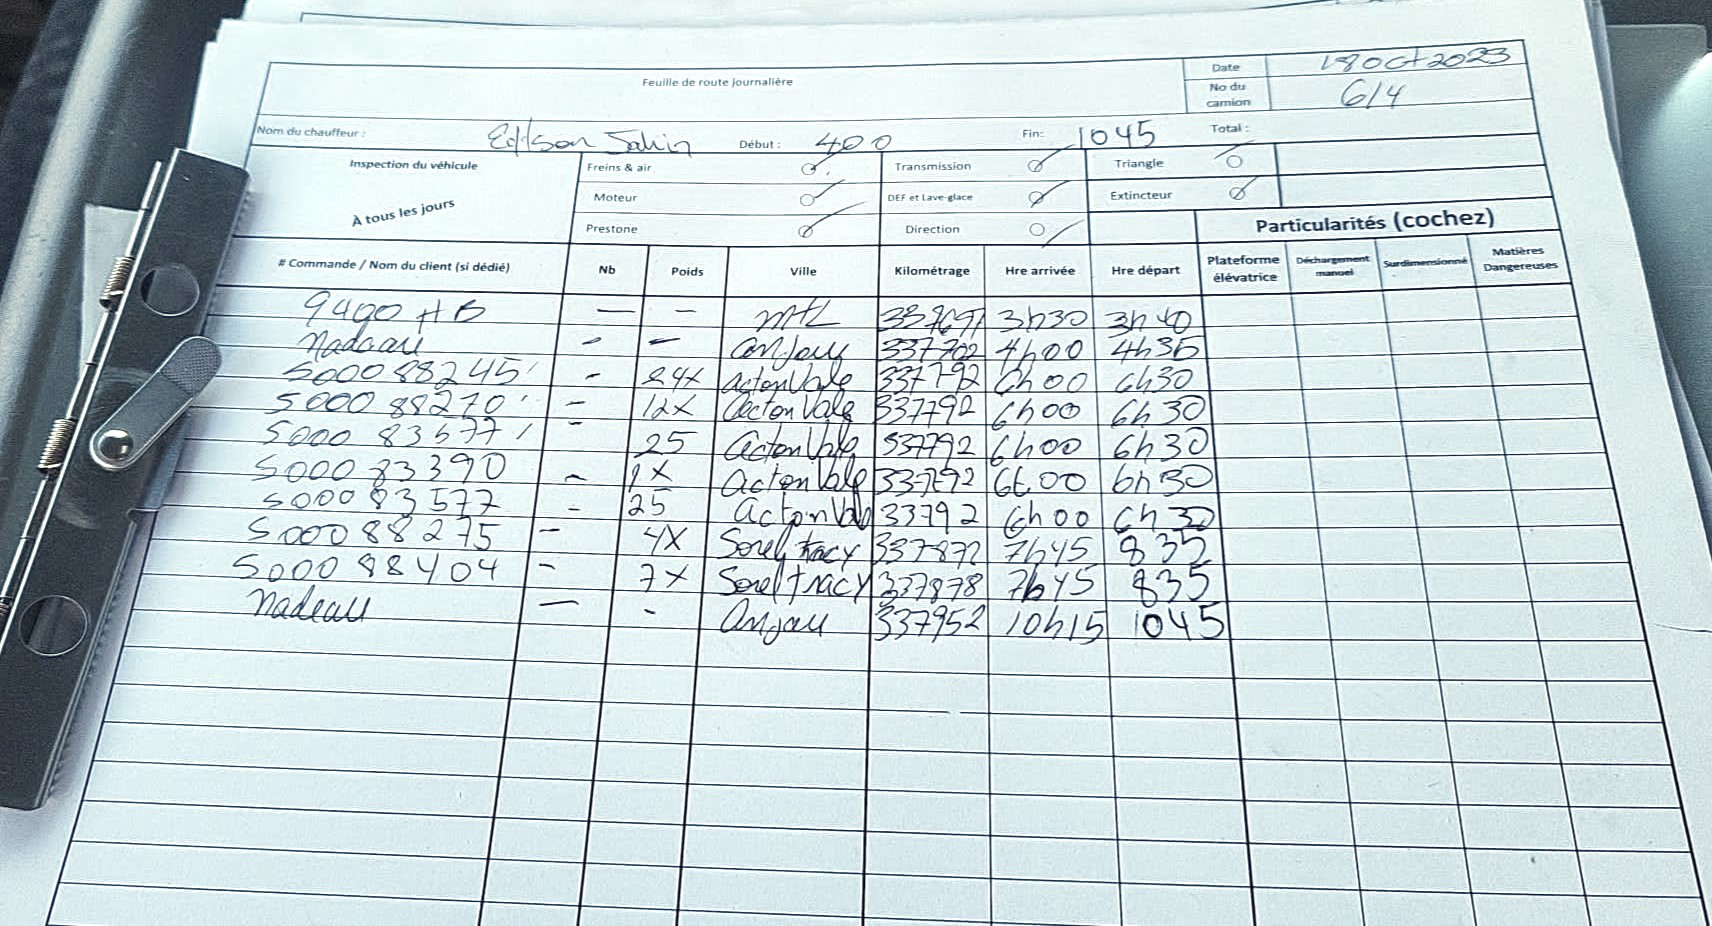 Feuille de route journalière
Date 18 Oct 2023
No du camion 614
Nom du chauffeur : Edison Début : 400 Fin: 1045 Total :
Inspection du véhicule Freins & air Transmission Triangle
À tous les jours Moteur DEF et Lave-glace Extincteur
Prestone Direction Particularités (cochez)
# Commande / Nom du client (si dédié) Nb Poids Ville Kilométrage Hre arrivée Hre départ Plateforme élévatrice Déchargement manuel Surdimensionné Matières Dangereuses
— – mtl 337691 3h30 3h40
Nadeau – – anjou 337702 4h00 4h35
5000 88245 – 24x acton Vale 337792 6h00 6h30
5000 88270 – 12x acton Vale 337792 6h00 6h30
5000 83577 – 25 acton Vale 337792 6h00 6h30
5000 83390 – 1x acton Vale 337792 6h00 6h30
5000 83577 – 25 acton Val 33792 6h00 6h30
5000 88275 – 4x Sorel tracy 337872 7h45 835
5000 88404 – 7x Sorel tracy 337878 7h45 835
Nadeau — - Anjou 337952 10h15 1045